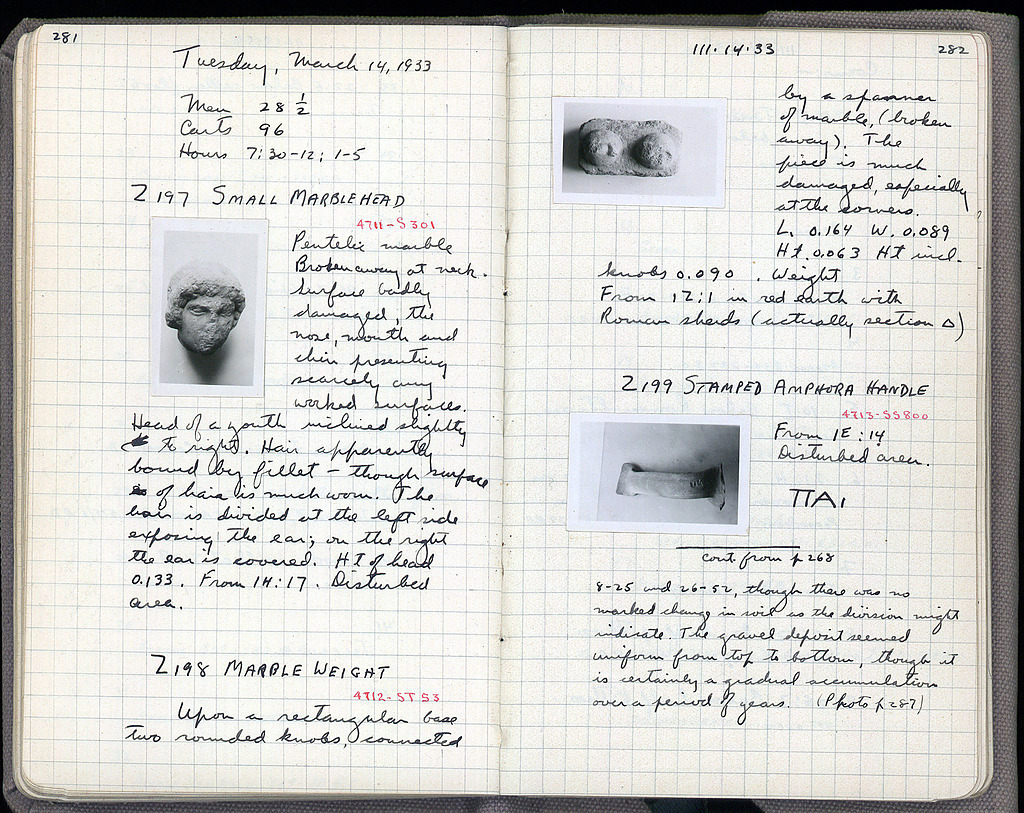 281
Tuesday, March 14, 1933
Men 28 1/2
Carts 96
Hours 7:30-12; 1-5
Z 197 SMALL MARBLE HEAD
4711-S 301
Pentelic marble
Broken away at neck.
Surface badly
damaged, the
nose, mouth and
chin presenting
scarcely any
worked surfaces.
Head of a youth inclined slightly
to right. Hair apparently
bound by fillet – though surface
of hair is much worn. The
hair is divided at the left side
exposing the ear; on the right
the ear is covered. Ht of head
0.133. From 1H:17. Disturbed
area.
Z 198 MARBLE WEIGHT
4712-ST 53
Upon a rectangular base
two rounded knobs, connected
III·14·33
282
by a spanner
of marble, (broken
away). The
piece is much
damaged, especially
at the corners.
L. 0.164 W. 0.089
Ht. 0.063 Ht incl.
knobs 0.090. Weight
From IZ:1 in red earth with
Roman sherds (actually section Δ)
Z 199 STAMPED AMPHORA HANDLE
4713-SS800
From 1E:14
Disturbed area.
ΠΑΙ
cont. from p 268
8-25 and 26-52, though there was no
marked change in soil as the division might
indicate. The gravel deposit seemed
uniform from top to bottom, though it
is certainly a gradual accumulation
over a period of years. (Photo p 287)